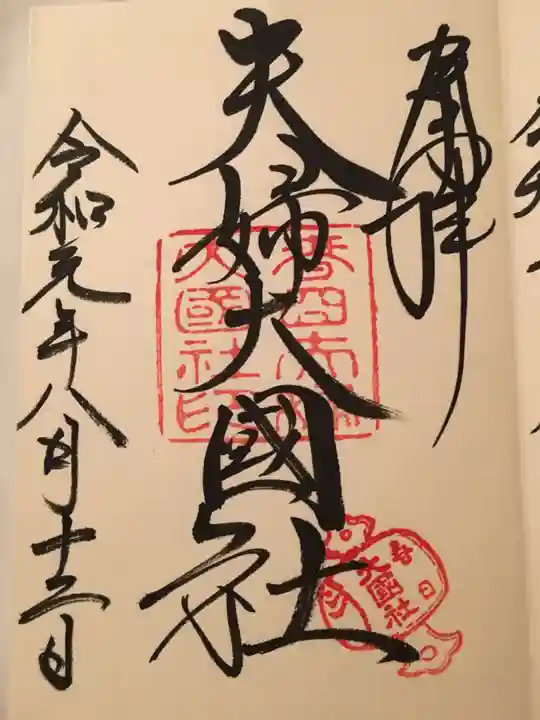 奉拝
夫婦大國社
春日大社
大國社印
春日
大國社
令和元年八月十二日